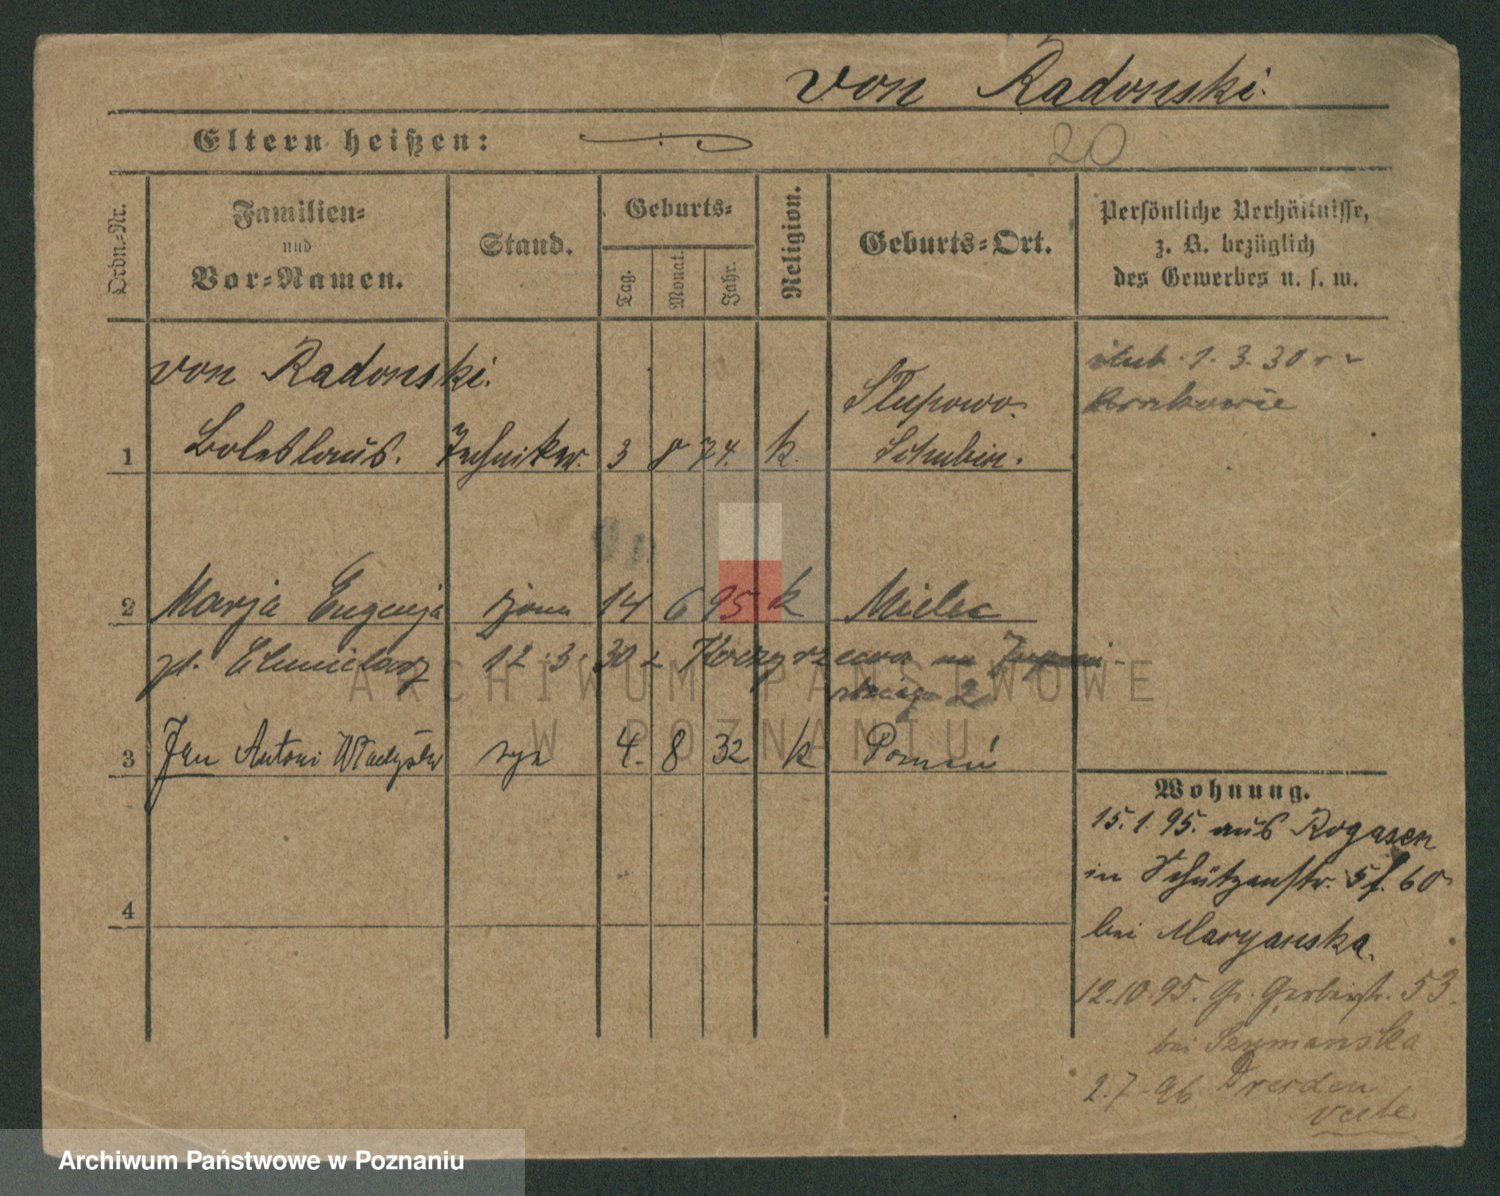 von Radonski.
Eltern heißen:
20
Ordn.-Nr.
Familien-
und
Vor-Namen.
Stand.
Geburts-
Tag.
Monat.
Jahr.
Religion.
Geburts-Ort.
Persönliche Verhältnisse,
z. B. bezüglich
des Gewerbes u. s. w.
von Radonski.
Słupowo.
ślub 1. 3. 30 r w
Krakowie
1 Boleslaus. Techniker. 3 8 74. k. Schubin.
2 Marja Eugenja żona 14 6 95 k Mielec
12. 3. 30 z
2
3 Jan Antoni Władysław syn 4. 8 32 k Poznań
4
Wohnung.
15. 1. 95. aus Rogasen
in Schützenstr. 60
bei Maryanska.
12. 10. 95. Gr. Gerberstr. 53.
bei Szymanska
2. 7. 96 Dresden
ARCHIWUM PAŃSTWOWE
W POZNANIU
Archiwum Państwowe w Poznaniu